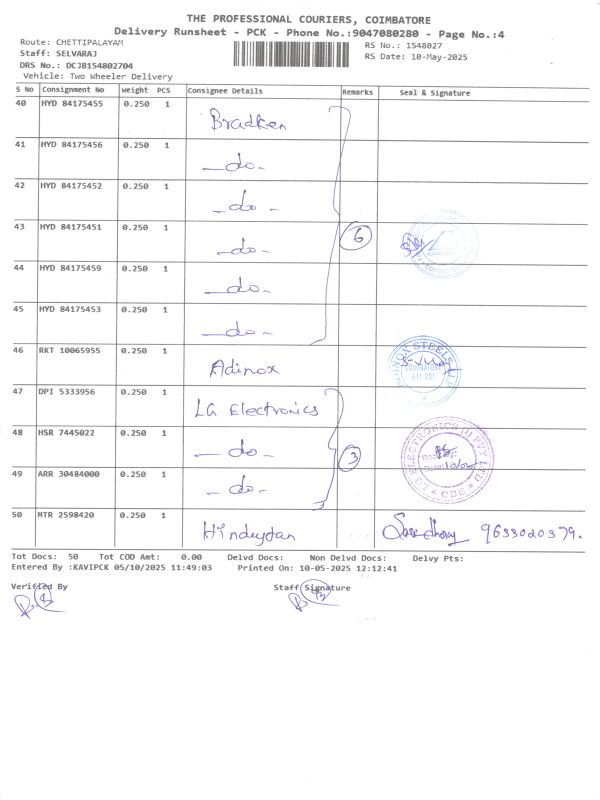 THE PROFESSIONAL COURIERS, COIMBATORE
Delivery Runsheet - PCK - Phone No.:9047080280 - Page No.:4
Route: CHETTIPALAYAM
RS No.: 1548027
Staff: SELVARAJ
RS Date: 10-May-2025
DRS No.: DCJB154802704
Vehicle: Two Wheeler Delivery
S No Consignment No Weight PCS Consignee Details Remarks Seal & Signature
40 HYD 84175455 0.250 1 Bradken
41 HYD 84175456 0.250 1 -do-
42 HYD 84175452 0.250 1 -do-
43 HYD 84175451 0.250 1 -do- 6
44 HYD 84175459 0.250 1 -do-
45 HYD 84175453 0.250 1 -do-
46 RKT 10065955 0.250 1 Adinox
47 DPI 5333956 0.250 1 LG Electronics
48 HSR 7445022 0.250 1 -do- 3
49 ARR 30484000 0.250 1 -do-
50 MTR 2598420 0.250 1 Hindustan
Tot Docs: 50 Tot COD Amt: 0.00 Delvd Docs: Non Delvd Docs: Delvy Pts:
Entered By :KAVIPCK 05/10/2025 11:49:03 Printed On: 10-05-2025 12:12:41
Verified By Staff Signature